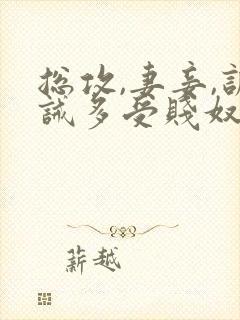 總攻,妻妾,訓
誡多受賤奴
薪越